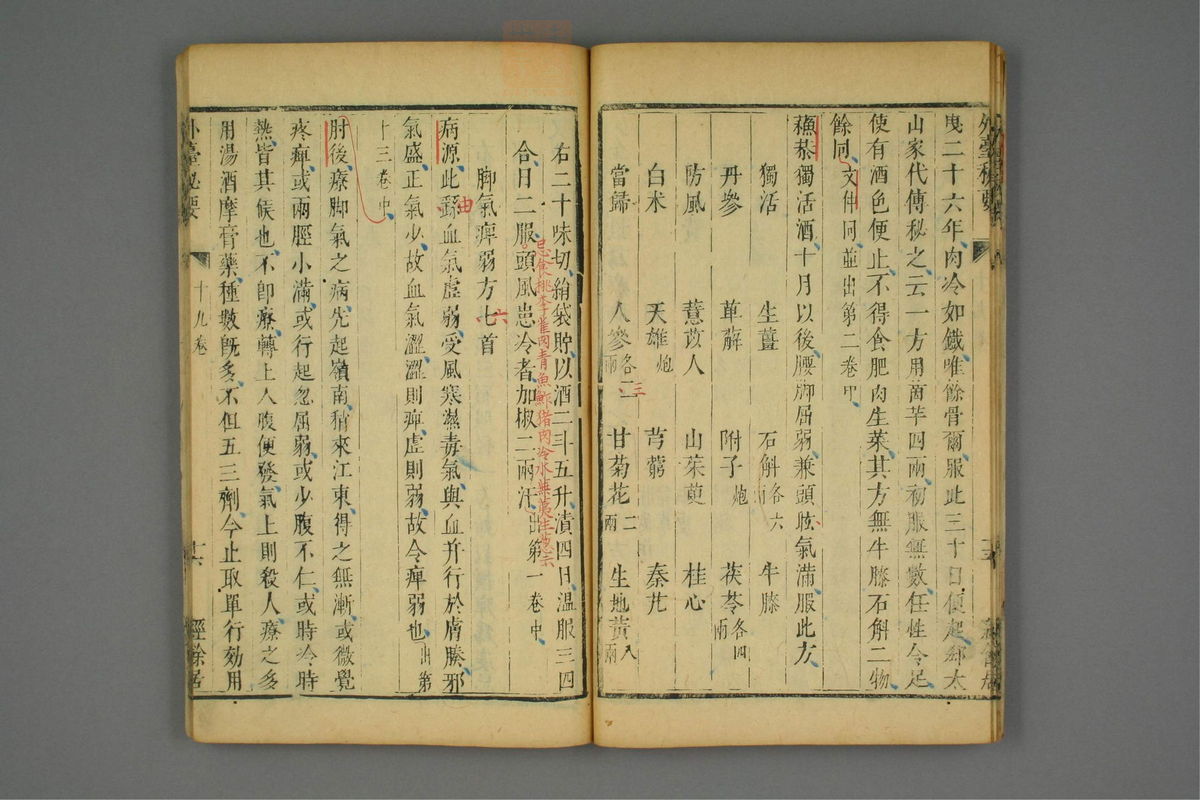 外臺秘要
曳二十六年肉冷如鐵唯餘骨爾服此三十日便起鄉太
山家代傳秘之云一方用茵芋四兩初服無數任性令足
使有酒色便止不得食肥肉生菜其方無牛膝石斛二物
餘同文仲同並出第二卷中
蘓恭獨活酒十月以後腰脚屈弱兼頭眩氣滿服此方
獨活 生薑 石斛各六兩 牛膝
丹參 萆薢 附子炮 茯苓各四兩
防風 薏苡人 山茱萸 桂心
白朮 天雄炮 芎藭 秦艽
當歸 人參各二兩 甘菊花二兩 生地黃八兩
三
右二十味切絹袋貯以酒二斗五升漬四日温服三四
合日二服頭風患冷者加椒二兩汗出第一卷中
忌食桃李雀肉青魚鮓猪肉冷水蕪荑生葱
脚氣痺弱方七首
六
病源此繇血氣虛弱受風寒濕毒氣與血并行於膚腠邪
由
氣盛正氣少故血氣澀澀則痺虛則弱故令痺弱也出第
十三卷中
肘後療脚氣之病先起嶺南稍來江東得之無漸或微覺
疼痺或兩脛小滿或行起忽屈弱或少腹不仁或時冷時
熱皆其候也不卽療轉上入腹便發氣上則殺人療之多
用湯酒摩膏藥種數旣多不但五三劑今止取單行効用
外臺秘要 十九卷 十六 經餘居